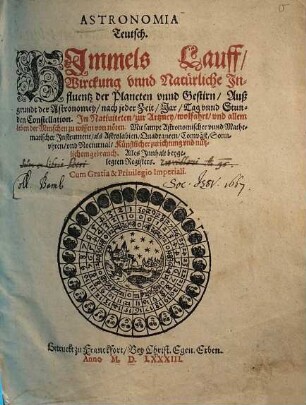 ASTRONOMIA
Teutsch.
HImmels Lauff/
Wirckung vnnd Natürliche In-
fluentz der Planeten vnnd Gestirn/ Auß
grundt der Astronomey/ nach jeder Zeit/ Jar/ Tag vnnd Stun-
den Constellation. In Natiuiteten/ zur Artzney/ wolfahrt/ vnd allem
leben der Menschen zu wissen von nöten.
Mit sampt Astronomischer vnnd Mathe-
matischer Instrument/ als Astrolabien, Quadranten/ Compaß/ Sonn-
vhren/ vnd Nocturnal/ Künstlicher zurichtung vnd nütz-
lichem gebrauch. Alles Innhalt beyge-
legten Registers.
Cum Gratia & Priuilegio Imperiali.
Getruckt zu Franckfort/ Bey Christ. Egen. Erben.
Anno M. D. LXXXIII.